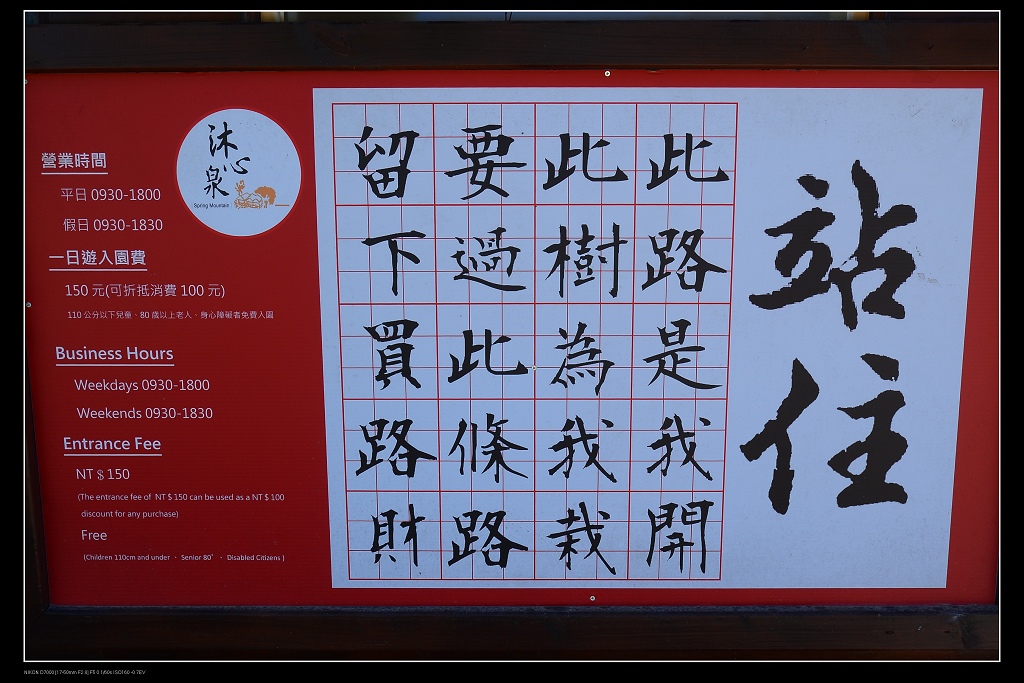 沐心泉
Spring Mountain
營業時間
平日 0930-1800
假日 0930-1830
一日遊入園費
150 元(可折抵消費 100 元)
110 公分以下兒童、80 歲以上老人、身心障礙者免費入園
Business Hours
Weekdays 0930-1800
Weekends 0930-1830
Entrance Fee
NT $ 150
(The entrance fee of NT $ 150 can be used as a NT $ 100
discount for any purchase)
Free
(Children 110cm and under 、 Senior 80˚ 、 Disabled Citizens )
站住
此路是我開
此樹為我栽
要過此條路
留下買路財